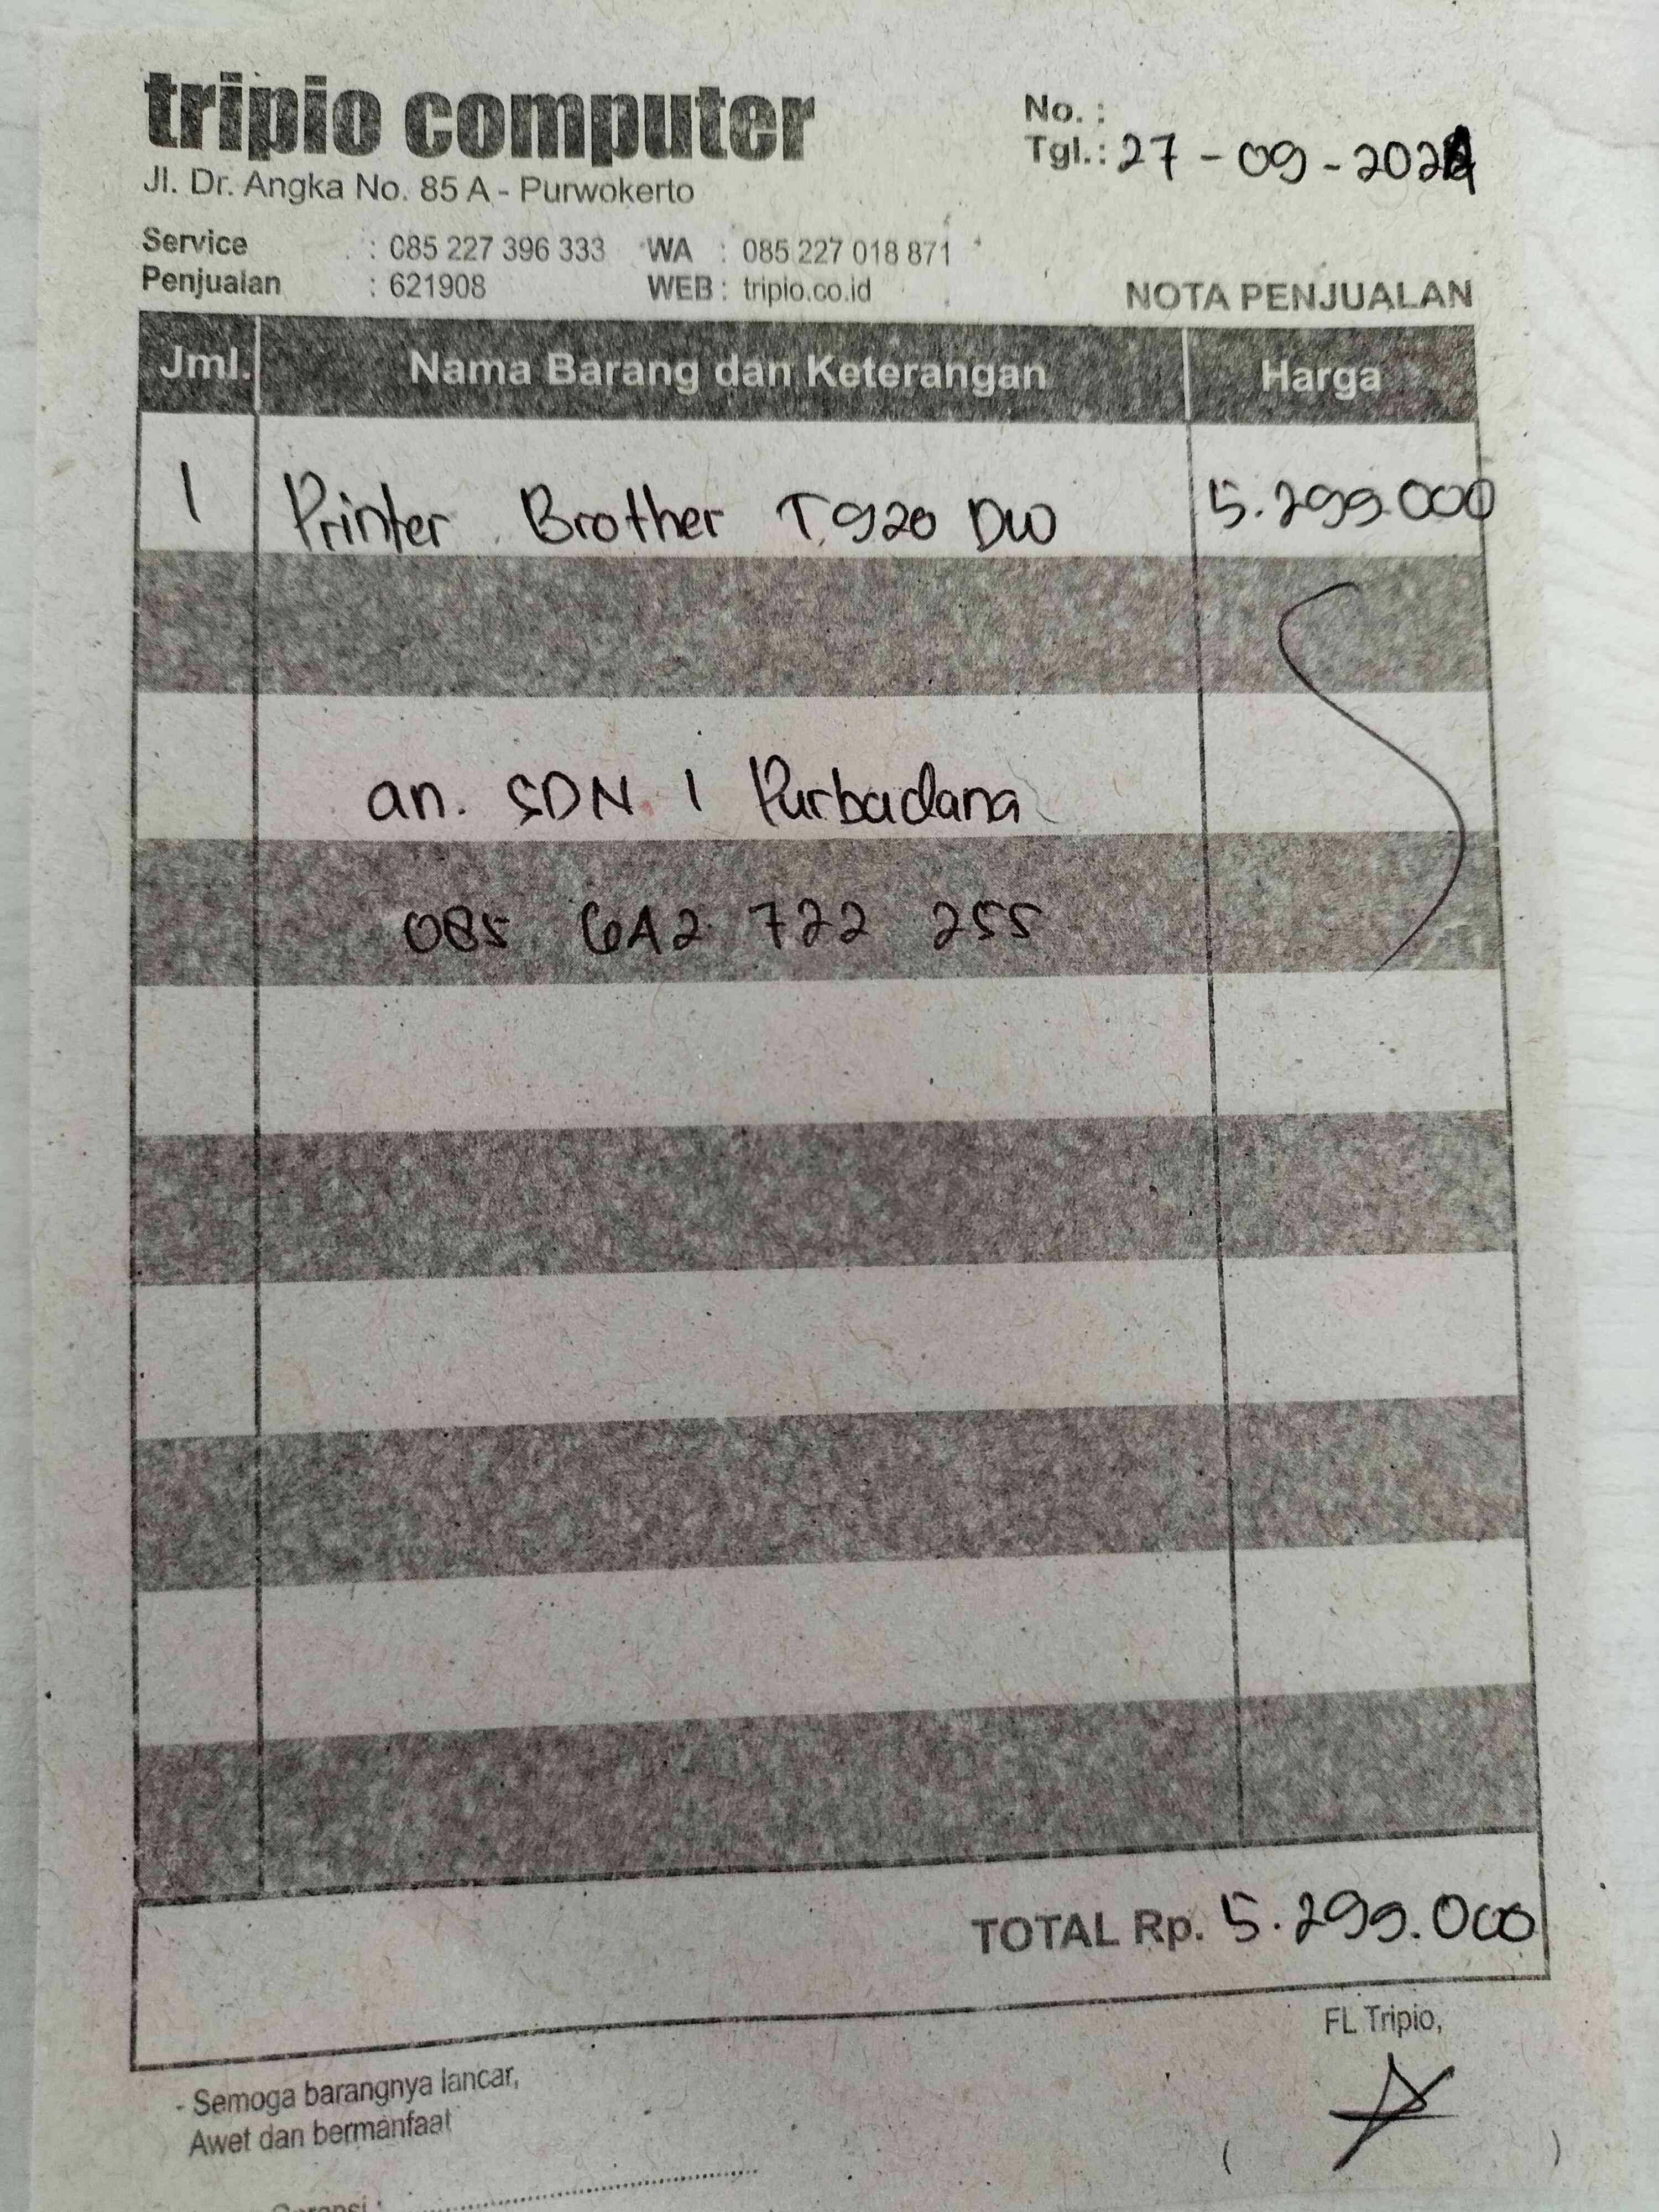 tripio computer
Jl. Dr. Angka No. 85 A - Purwokerto
No. :
Tgl.: 27 - 09 - 2024
Service : 085 227 396 333 WA : 085 227 018 871
Penjualan : 621908 WEB : tripio.co.id
NOTA PENJUALAN
Jml. Nama Barang dan Keterangan Harga
1 Printer Brother T920 DW 5.299.000
an. SDN 1 Purbadana
085 642 722 255
TOTAL Rp. 5.299.000
FL Tripio,
- Semoga barangnya lancar,
Awet dan bermanfaat
( )
Garansi :